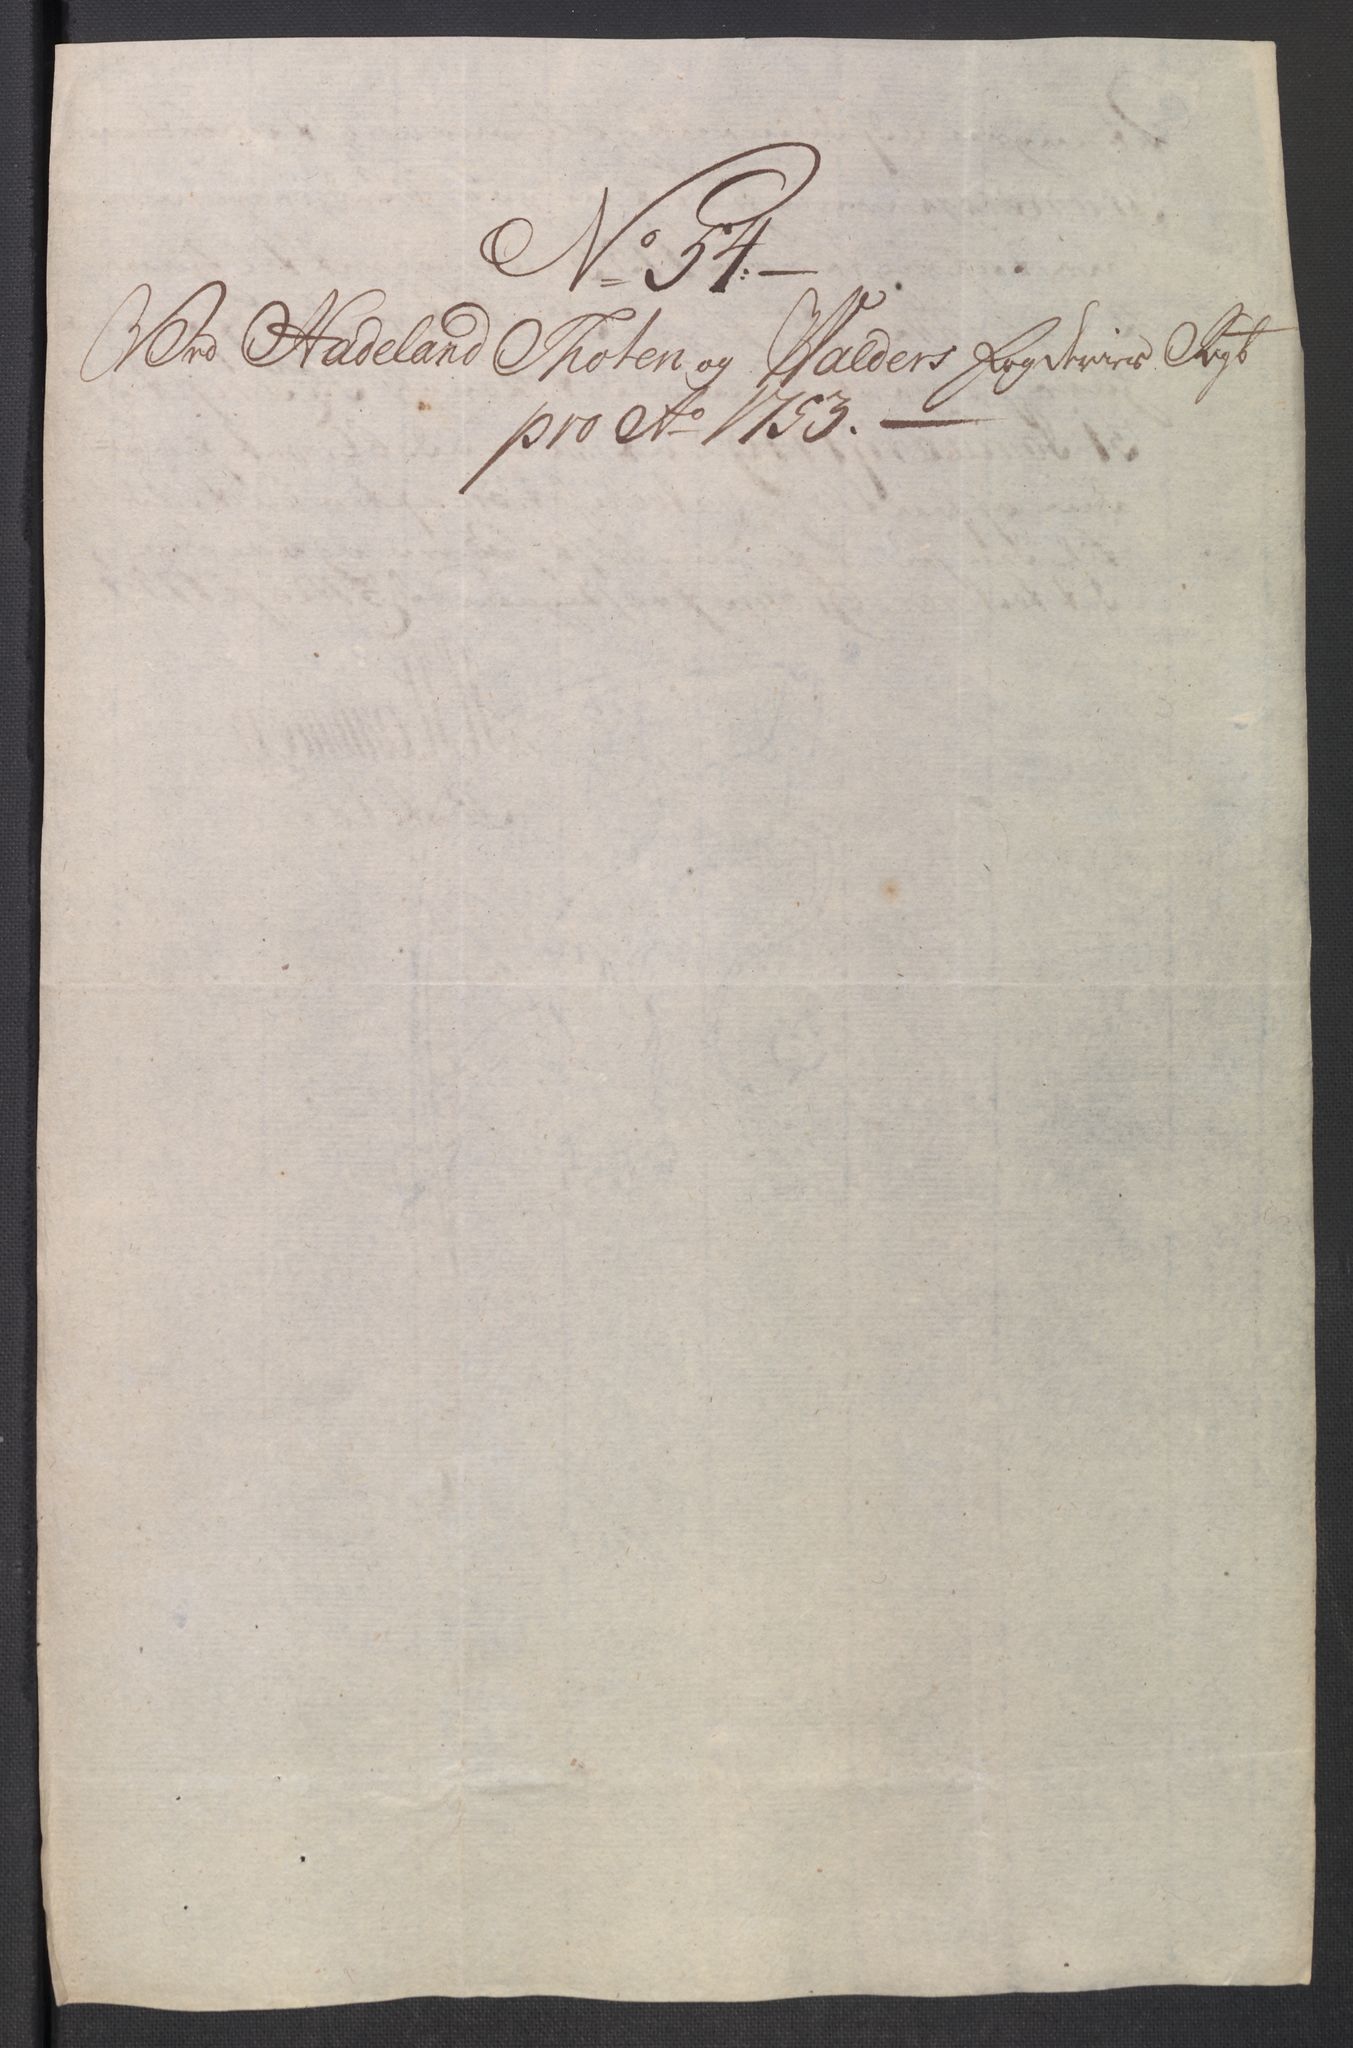 No 54.
Ved Hadeland Thoten og Walders Fogderiers Rgb
pro Ao 1753.